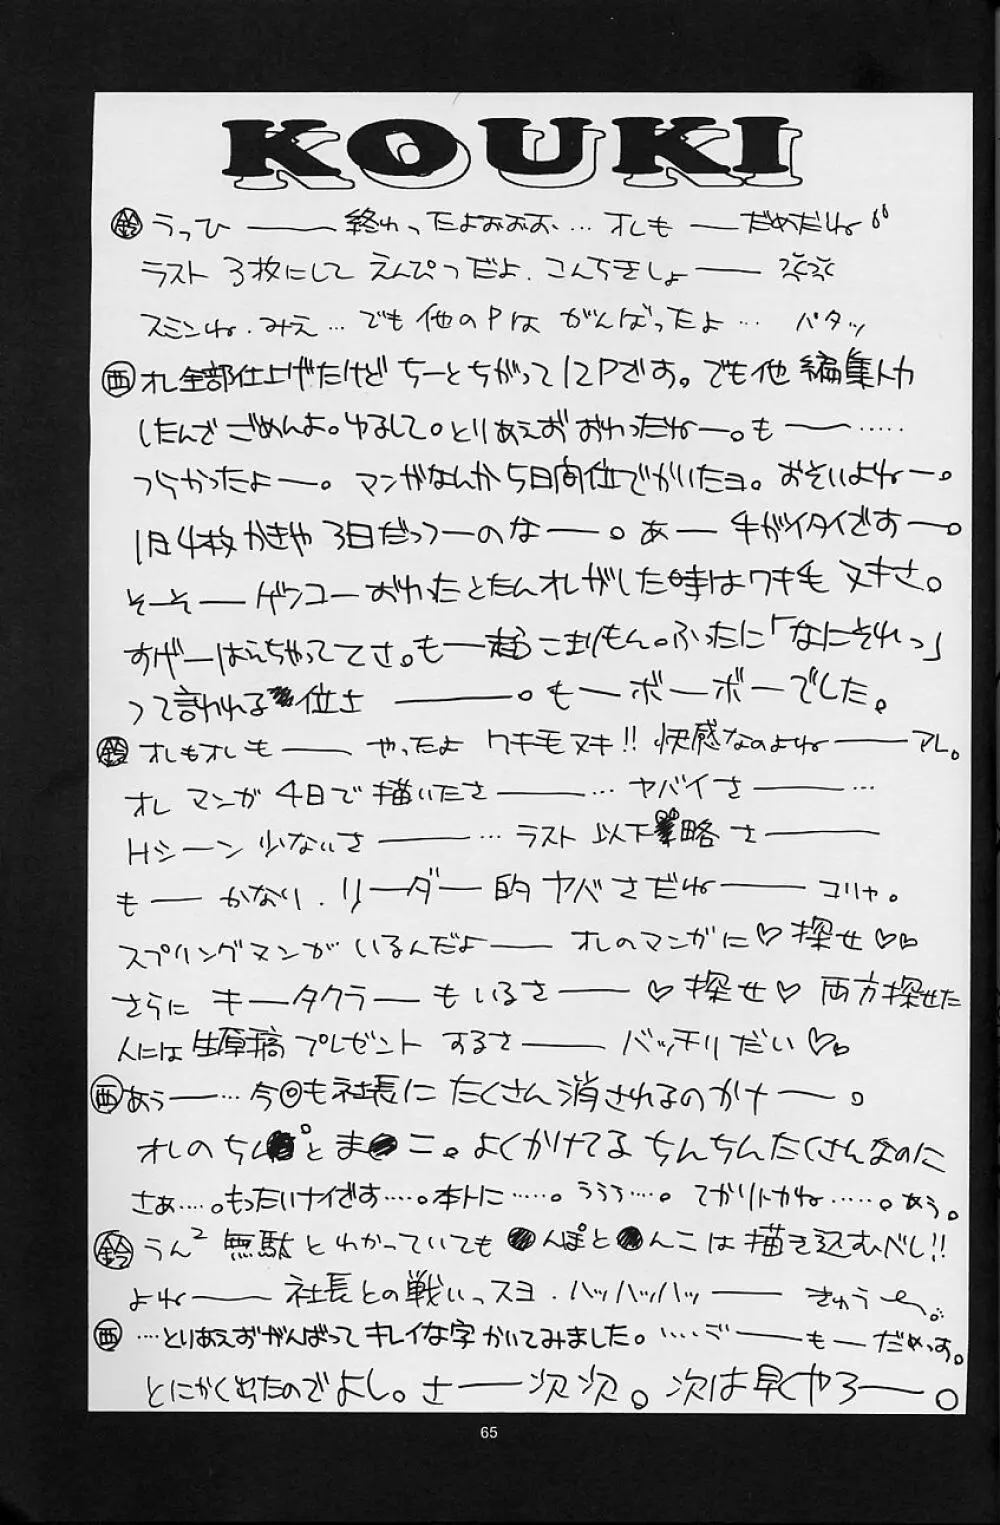 KOUKI
㊎ うっひ――― 終わったよおおお、… オレも ― だめだね
ラスト 3枚にして えんぴつだよ. こんちきしょ――― 
スミンね. みえ … でも 他のPは がんばったよ … パタッ
西 オレ全部仕上げたけど ちーとちがって12Pです。でも他 編集トカ
したんで ごめんよ。ゆるして。とりあえず おわったねー。も――……
つらかったよ―。 マンガなんか 5日間位でかいたヨ。おそいよねー。
1日4枚 かきゃ 3日だっつーのな――。あ― 手がイタイです―。
そーそ―― ゲンコーおわったとたんオレがした時はワキ毛 ヌキさ。
すげーはえちゃっててさ。もー超こまりもん。ふったに「なにそれっ」
って言われる位さ ―――。もーボーボーでした。
鈴 オレもオレも―― やったよ ワキモヌキ!! 快感なのよね――― アレ。
オレ マンガ 4日で 描いたさ―――… ヤバイさ―――…
Hシーン 少ないさ―――… ラスト 以下略 さ―――
も― かなり. リーダー的 ヤバさだね――― コリャ。
スプリングマンが いるんだよ―― オレのマンガに♡ 探せ ♡♡
さらに キータクラーもいるさ――― ♡ 探せ ♡ 両方探せた
人には 生原稿 プレゼント するさ――― バッチリだい ♡♡
西 あぅ――… 今回も社長に たくさん消されるのかナ――。
オレのち●●とま●こ。よくかけてる ちんちんたくさんなのに
さぁ……。もったいナイです……。本トに……。ううう…。てかりトカね……。あぅ。
鈴 うん² 無駄 と わかっていても ●んぽと●んこは 描き込むべし!!
よね――― 社長との戦いっスヨ. ハッハッハッ――― きゅう~。
西 …とりあえずがんばってキレイな字かいてみました。……ご――もーだめっす。
とにかく出たのでよし。さ――次次。次は早くやろ――。
65